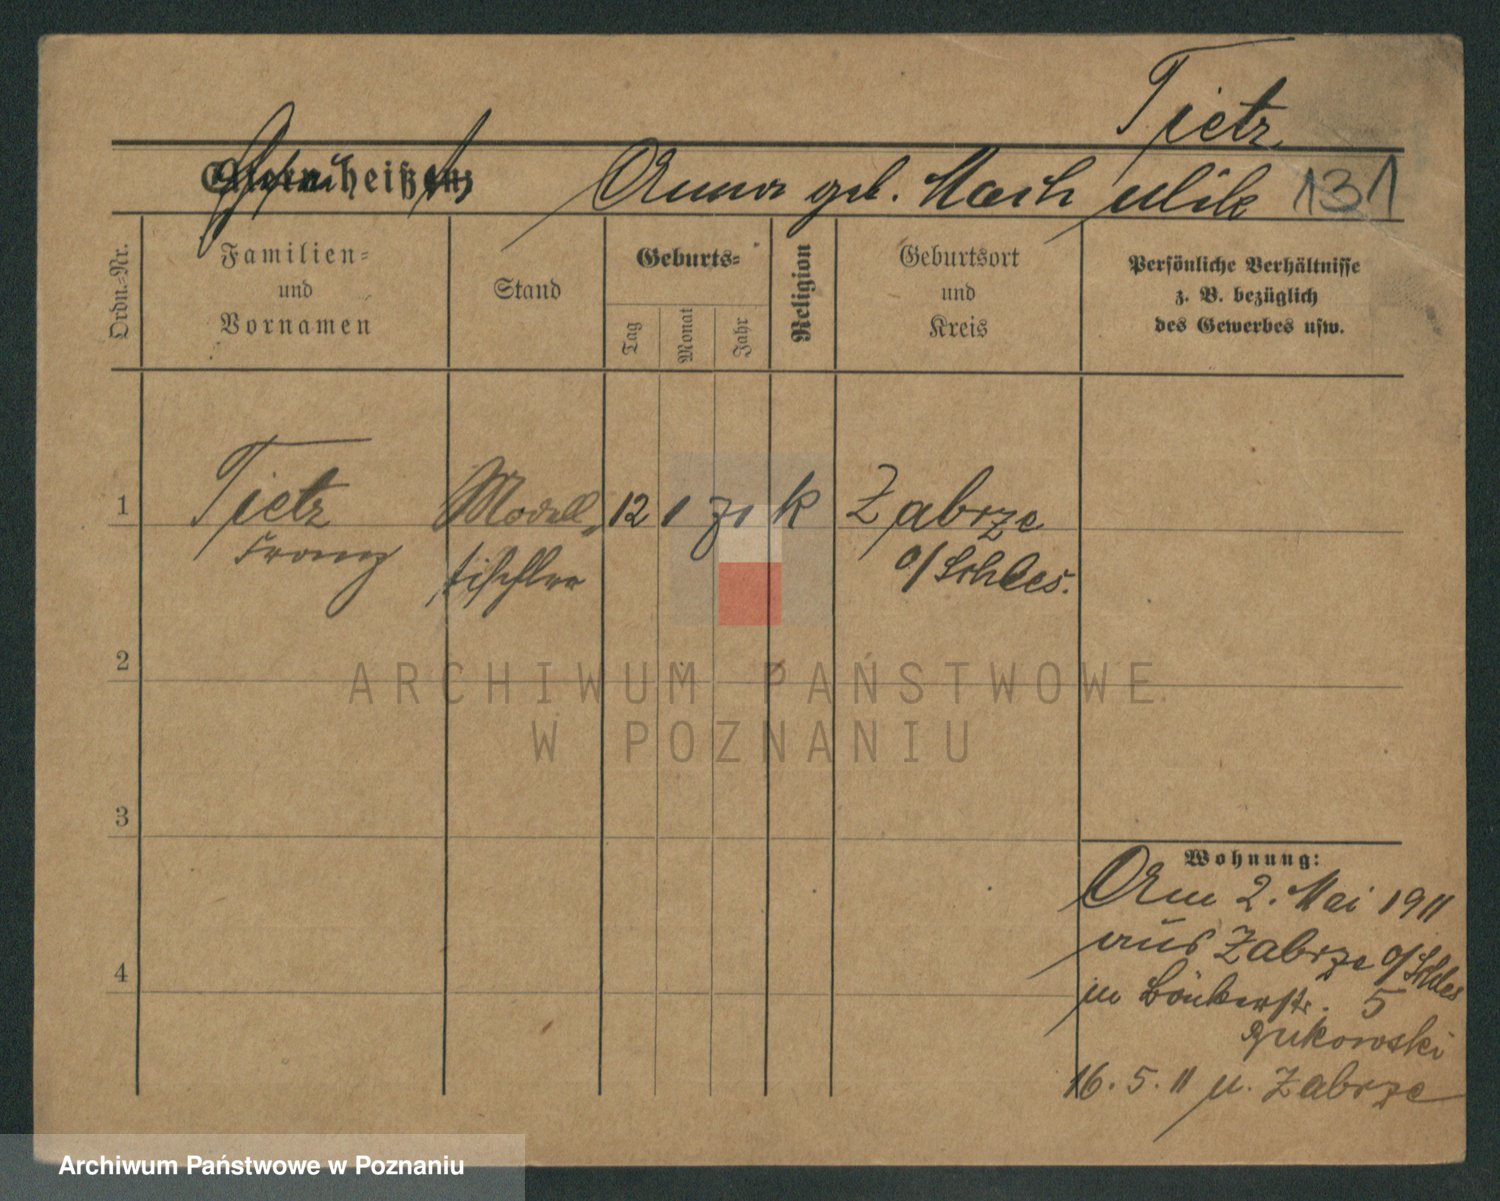 Tietz
Eltern heißen:
Anna geb. Machulik 131
Ordn.-Nr.
Familien-
und
Vornamen
Stand
Geburts-
Tag
Monat
Jahr
Religion
Geburtsort
und
Kreis
Persönliche Verhältnisse
z. B. bezüglich
des Gewerbes usw.
1 Tietz Modell- 12 1 71 k Zabrze
Franz tischler o/Schles.
2
3
4
Wohnung:
Am 2. Mai 1911
aus Zabrze o/Schles
5
Zukowski
16. 5. 11 n. Zabrze
ARCHIWUM PAŃSTWOWE
W POZNANIU
Archiwum Państwowe w Poznaniu